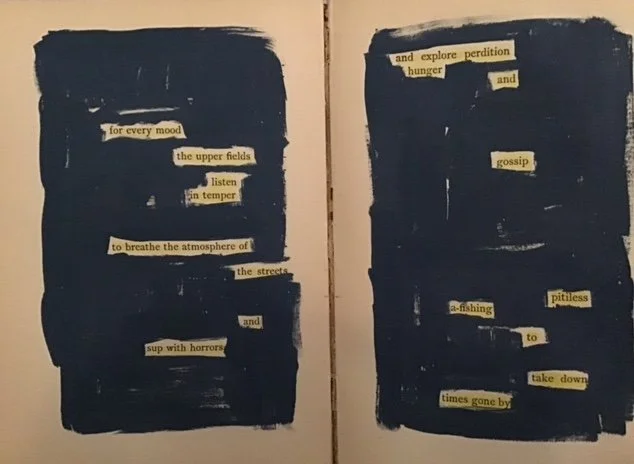 for every mood
the upper fields
listen
in temper
to breathe the atmosphere of
the streets
and
sup with horrors
and explore perdition
hunger
and
gossip
pitiless
a-fishing
to
take down
times gone by